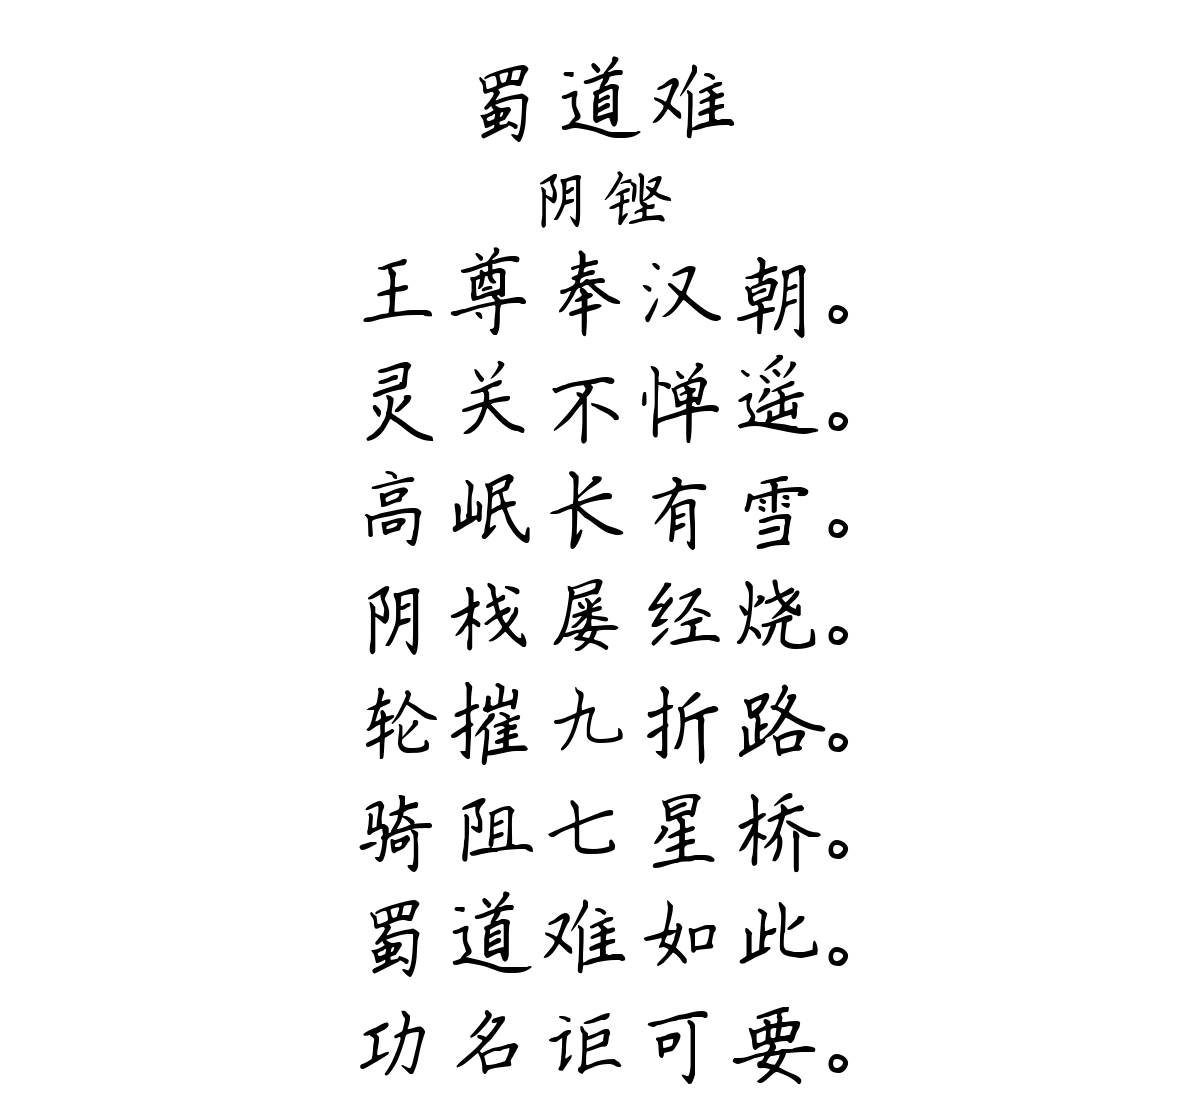 蜀道难
阴铿
王尊奉汉朝。
灵关不惮遥。
高岷长有雪。
阴栈屡经烧。
轮摧九折路。
骑阻七星桥。
蜀道难如此。
功名讵可要。